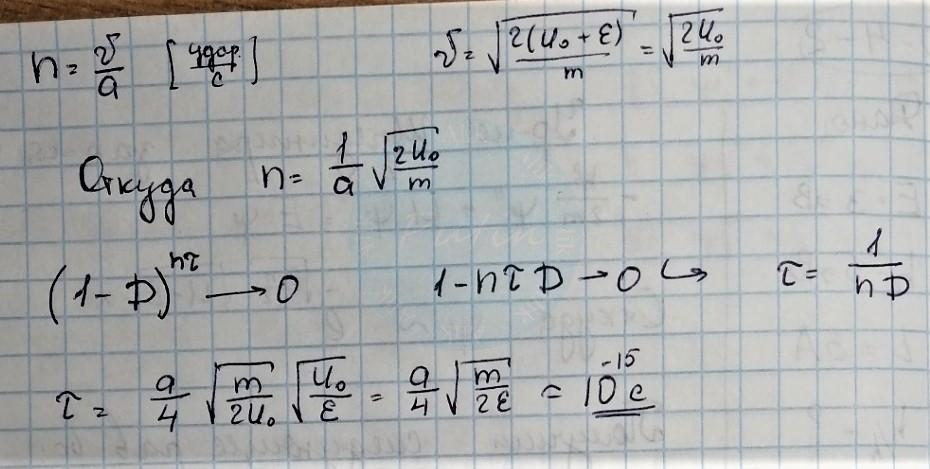 n = v/a [удар/с] v = √(2(U₀ + ε)/m) = √(2U₀/m)
Откуда n = 1/a √(2U₀/m)
(1 - D)^(nτ) → 0 1 - nτD → 0 ↪ τ = 1/(nD)
τ = a/4 √(m/2U₀) √(U₀/ε) = a/4 √(m/2ε) = 10⁻¹⁵ c